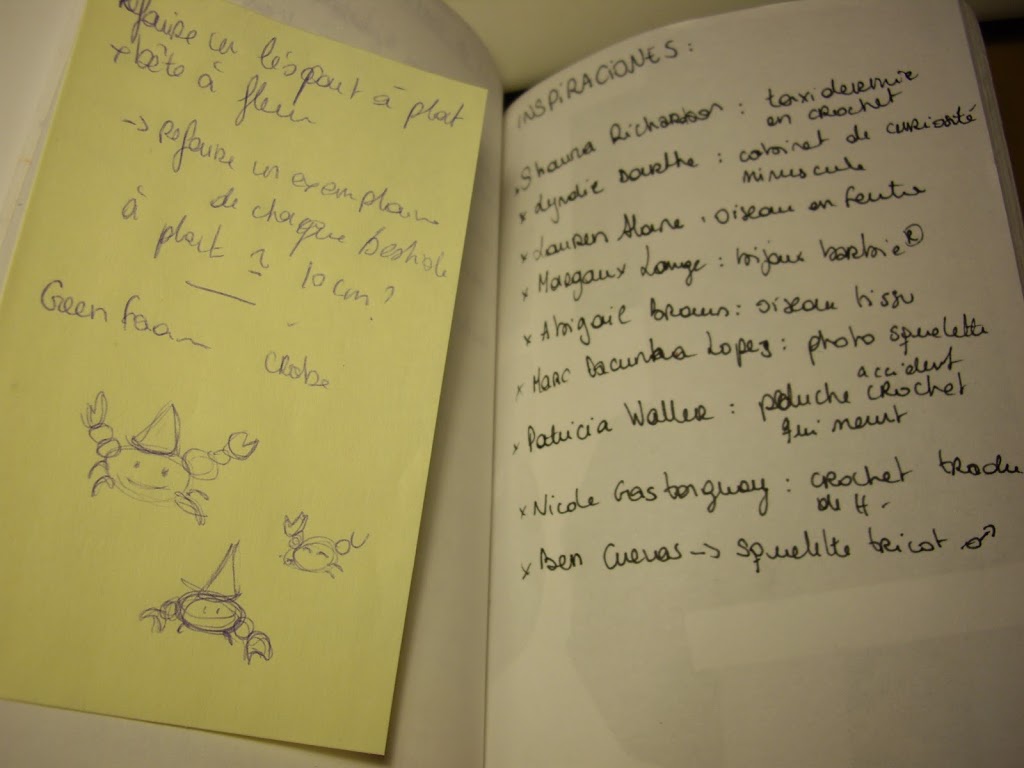 refaire un léopard à plat
+ bête à fleur
-> Refaire un exemplaire
de chaque bestiole
à plat ~ 10 cm ?
Green Faam
crabe
INSPIRACIONES :
x Shauna Richardson : taxidermie
en crochet
x Lyndie Dourthe : cabinet de curiosité
minuscule
x Lauren Alane : oiseau en feutre
x Margaux Lange : bijoux barbie ®
x Abigail Brown : oiseau tissu
x Marc Dacunha Lopez : photo squelette
accident
x Patricia Waller : peluche crochet
qui meurt
x Nicole Gastonguay : crochet
de H.
x Ben Cuevas -> squelette tricot ♂